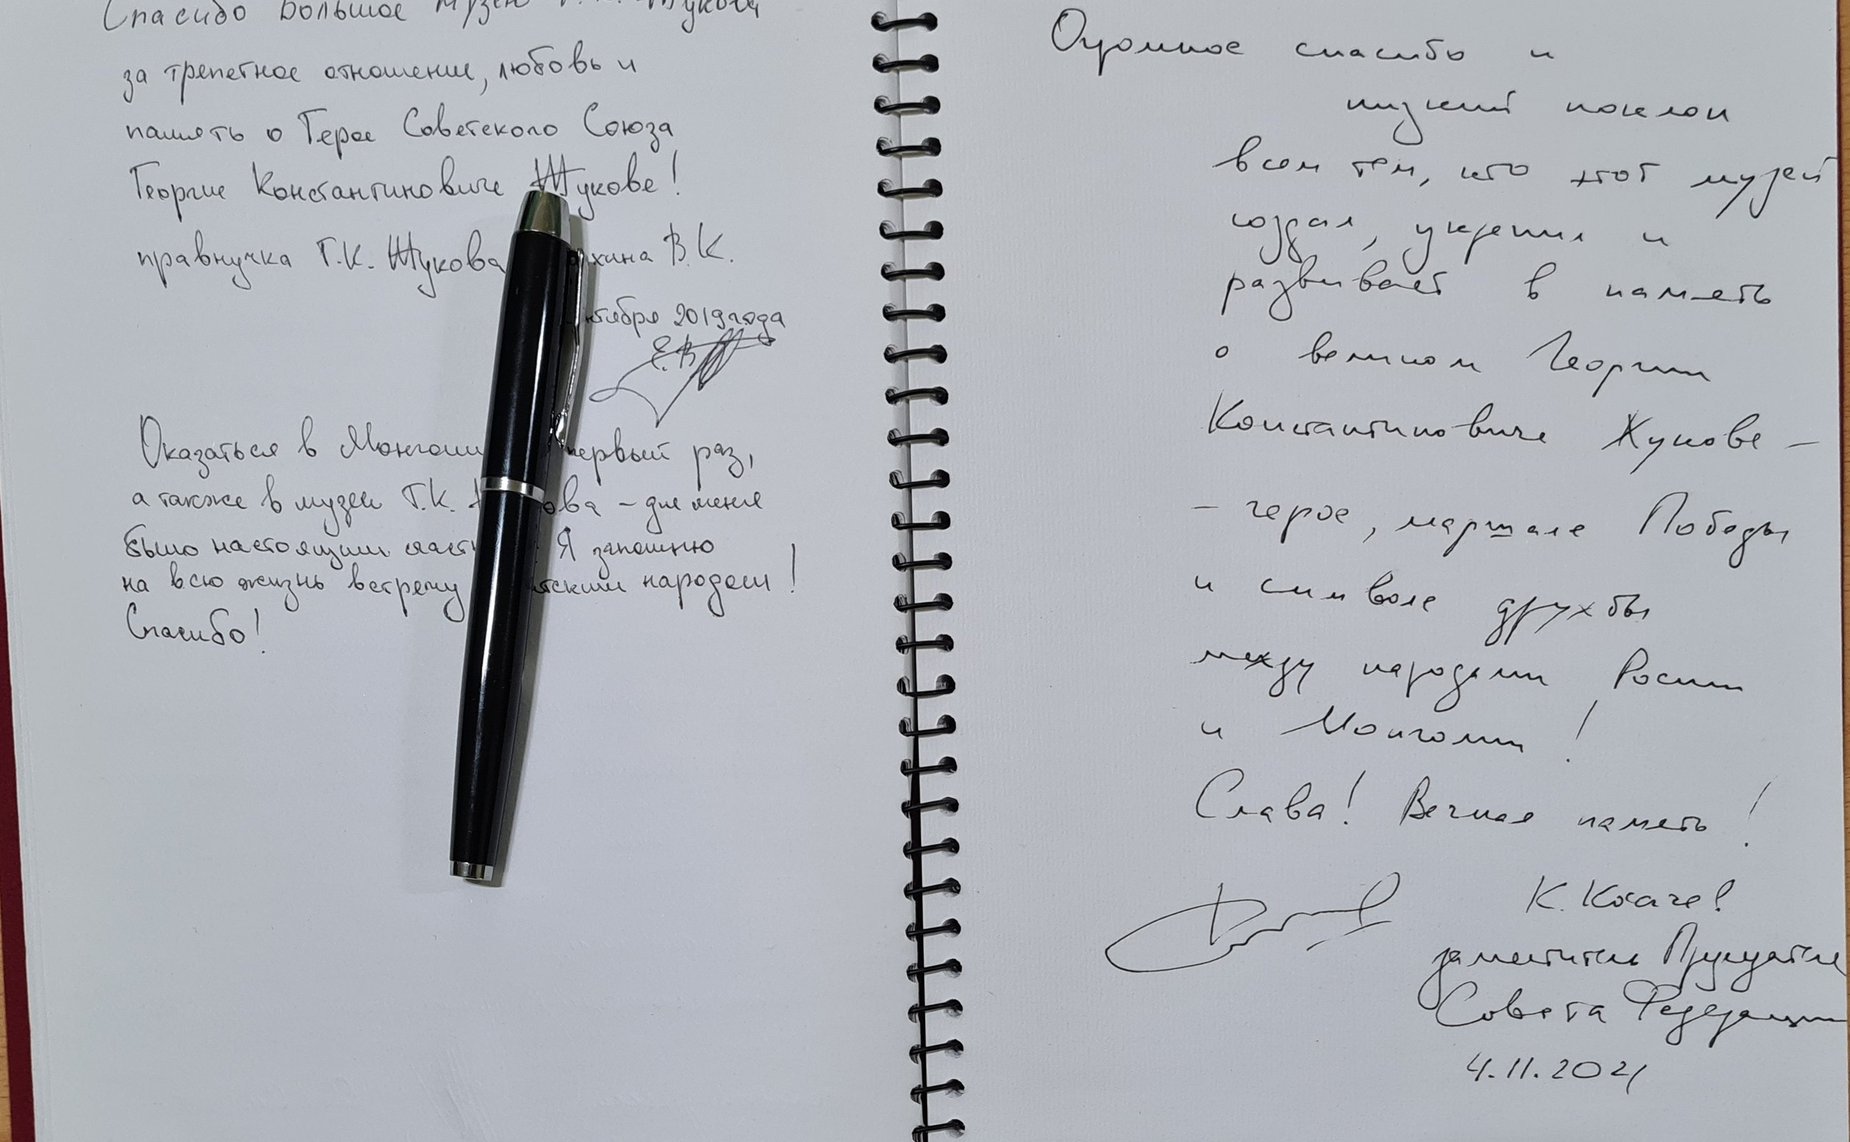 Спасибо большое музею Г.К. Жукова
за трепетное отношение, любовь и
память о Герое Советского Союза
Георгие Константиновиче Жукове!
правнучка Г.К. Жукова В.К.
2019 года
Оказаться в первый раз,
а также в музее Г.К. – для меня
было настоящим Я запомню
на всю жизнь встречу народом!
Спасибо!
Огромное спасибо и
низкий поклон
всем тем, кто этот музей
создал, укрепил и
развивает в память
о великом Георгии
Константиновиче Жукове –
– герое, маршале Победы
и символе дружбы
между народами России
и Монголии!
Слава! Вечная память!
К. Косачев
заместитель Председателя
Совета Федерации
4.11.2021